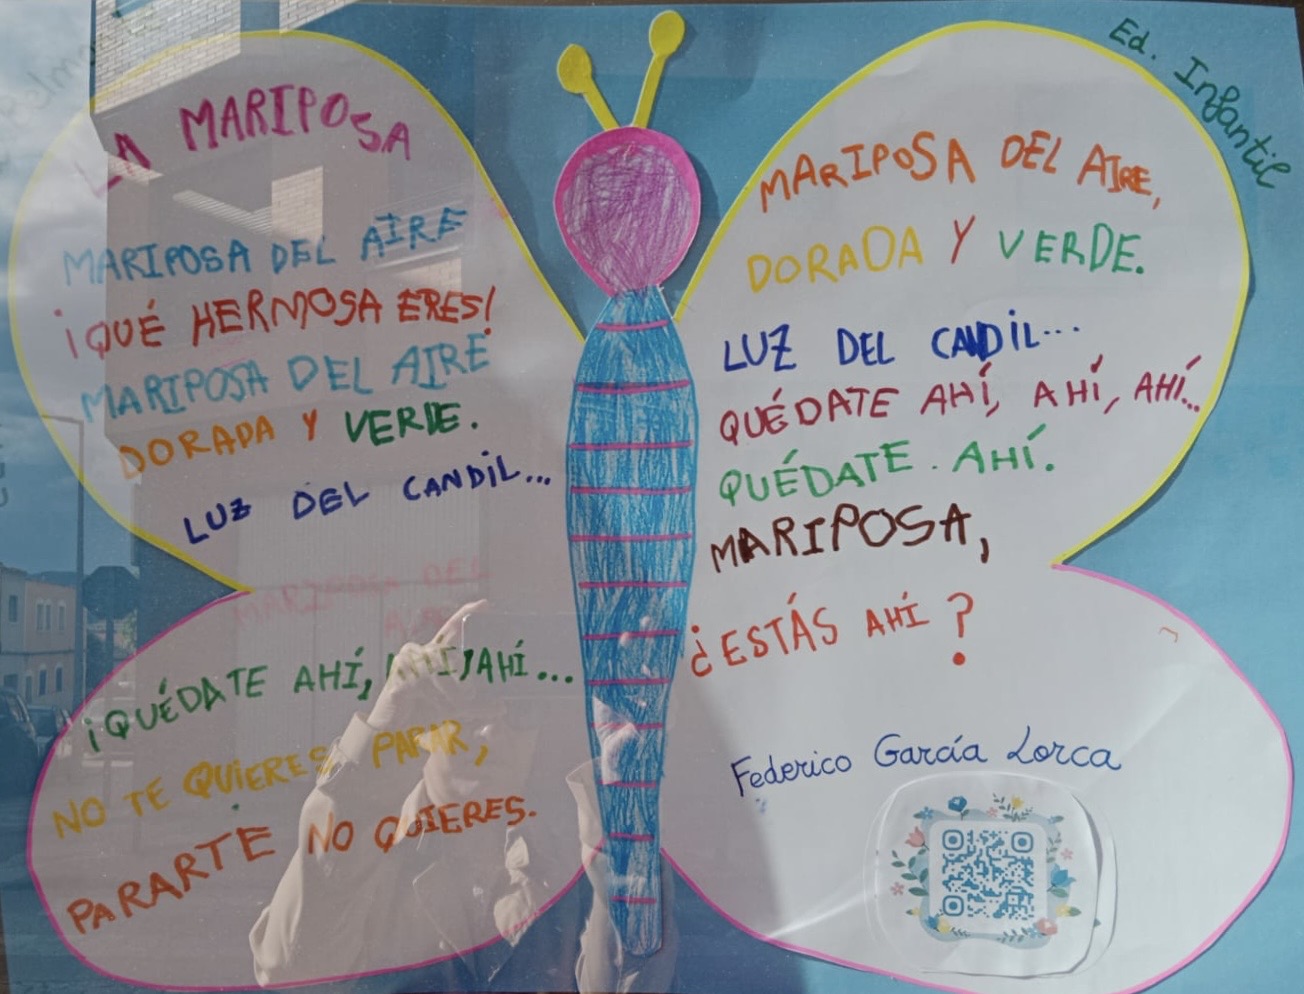 LA MARIPOSA
MARIPOSA DEL AIRE
¡QUÉ HERMOSA ERES!
MARIPOSA DEL AIRE
DORADA Y VERDE.
LUZ DEL CANDIL...
MARIPOSA DEL
AIRE
¡QUÉDATE AHÍ, AHÍ, AHÍ...
NO TE QUIERES PARAR,
PARARTE NO QUIERES.
Ed. Infantil
MARIPOSA DEL AIRE,
DORADA Y VERDE.
LUZ DEL CANDIL...
QUÉDATE AHÍ, AHÍ, AHÍ...
QUÉDATE. AHÍ.
MARIPOSA,
¿ESTÁS AHÍ?
Federico García Lorca